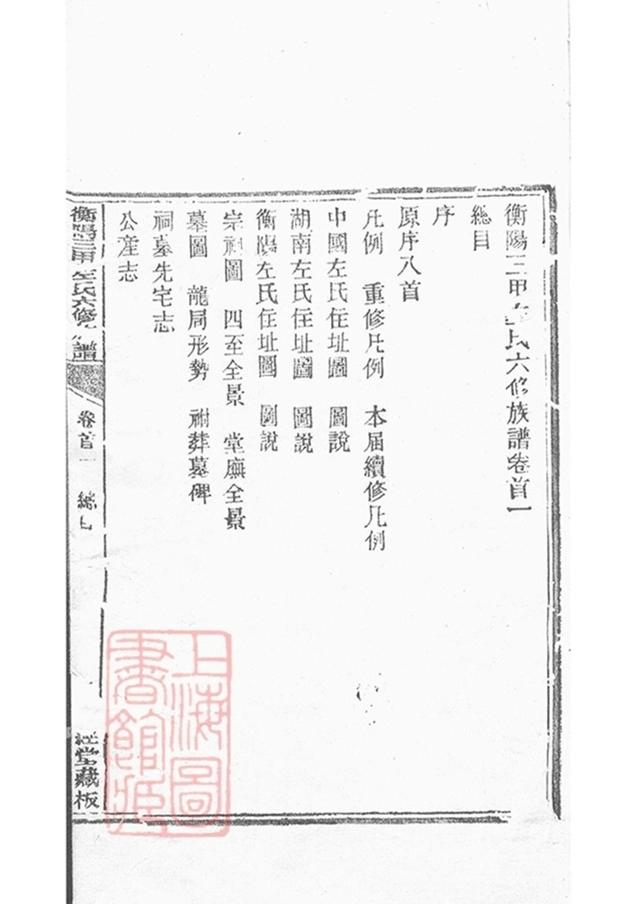 衡陽三甲左氏六修族譜卷首一
總目
序
原序八首
凡例　重修凡例　本届續修凡例
中國左氏住址圖　圖說
湖南左氏住址圖　圖說
衡陽左氏住址圖　圖說
宗祠圖　四至全景　堂廡全景
墓圖　龍局形勢　祔葬墓碑
祠墓先宅志
公產志
衡陽三甲左氏六修族譜
卷首一　總目
堂藏板
上海圖書館藏